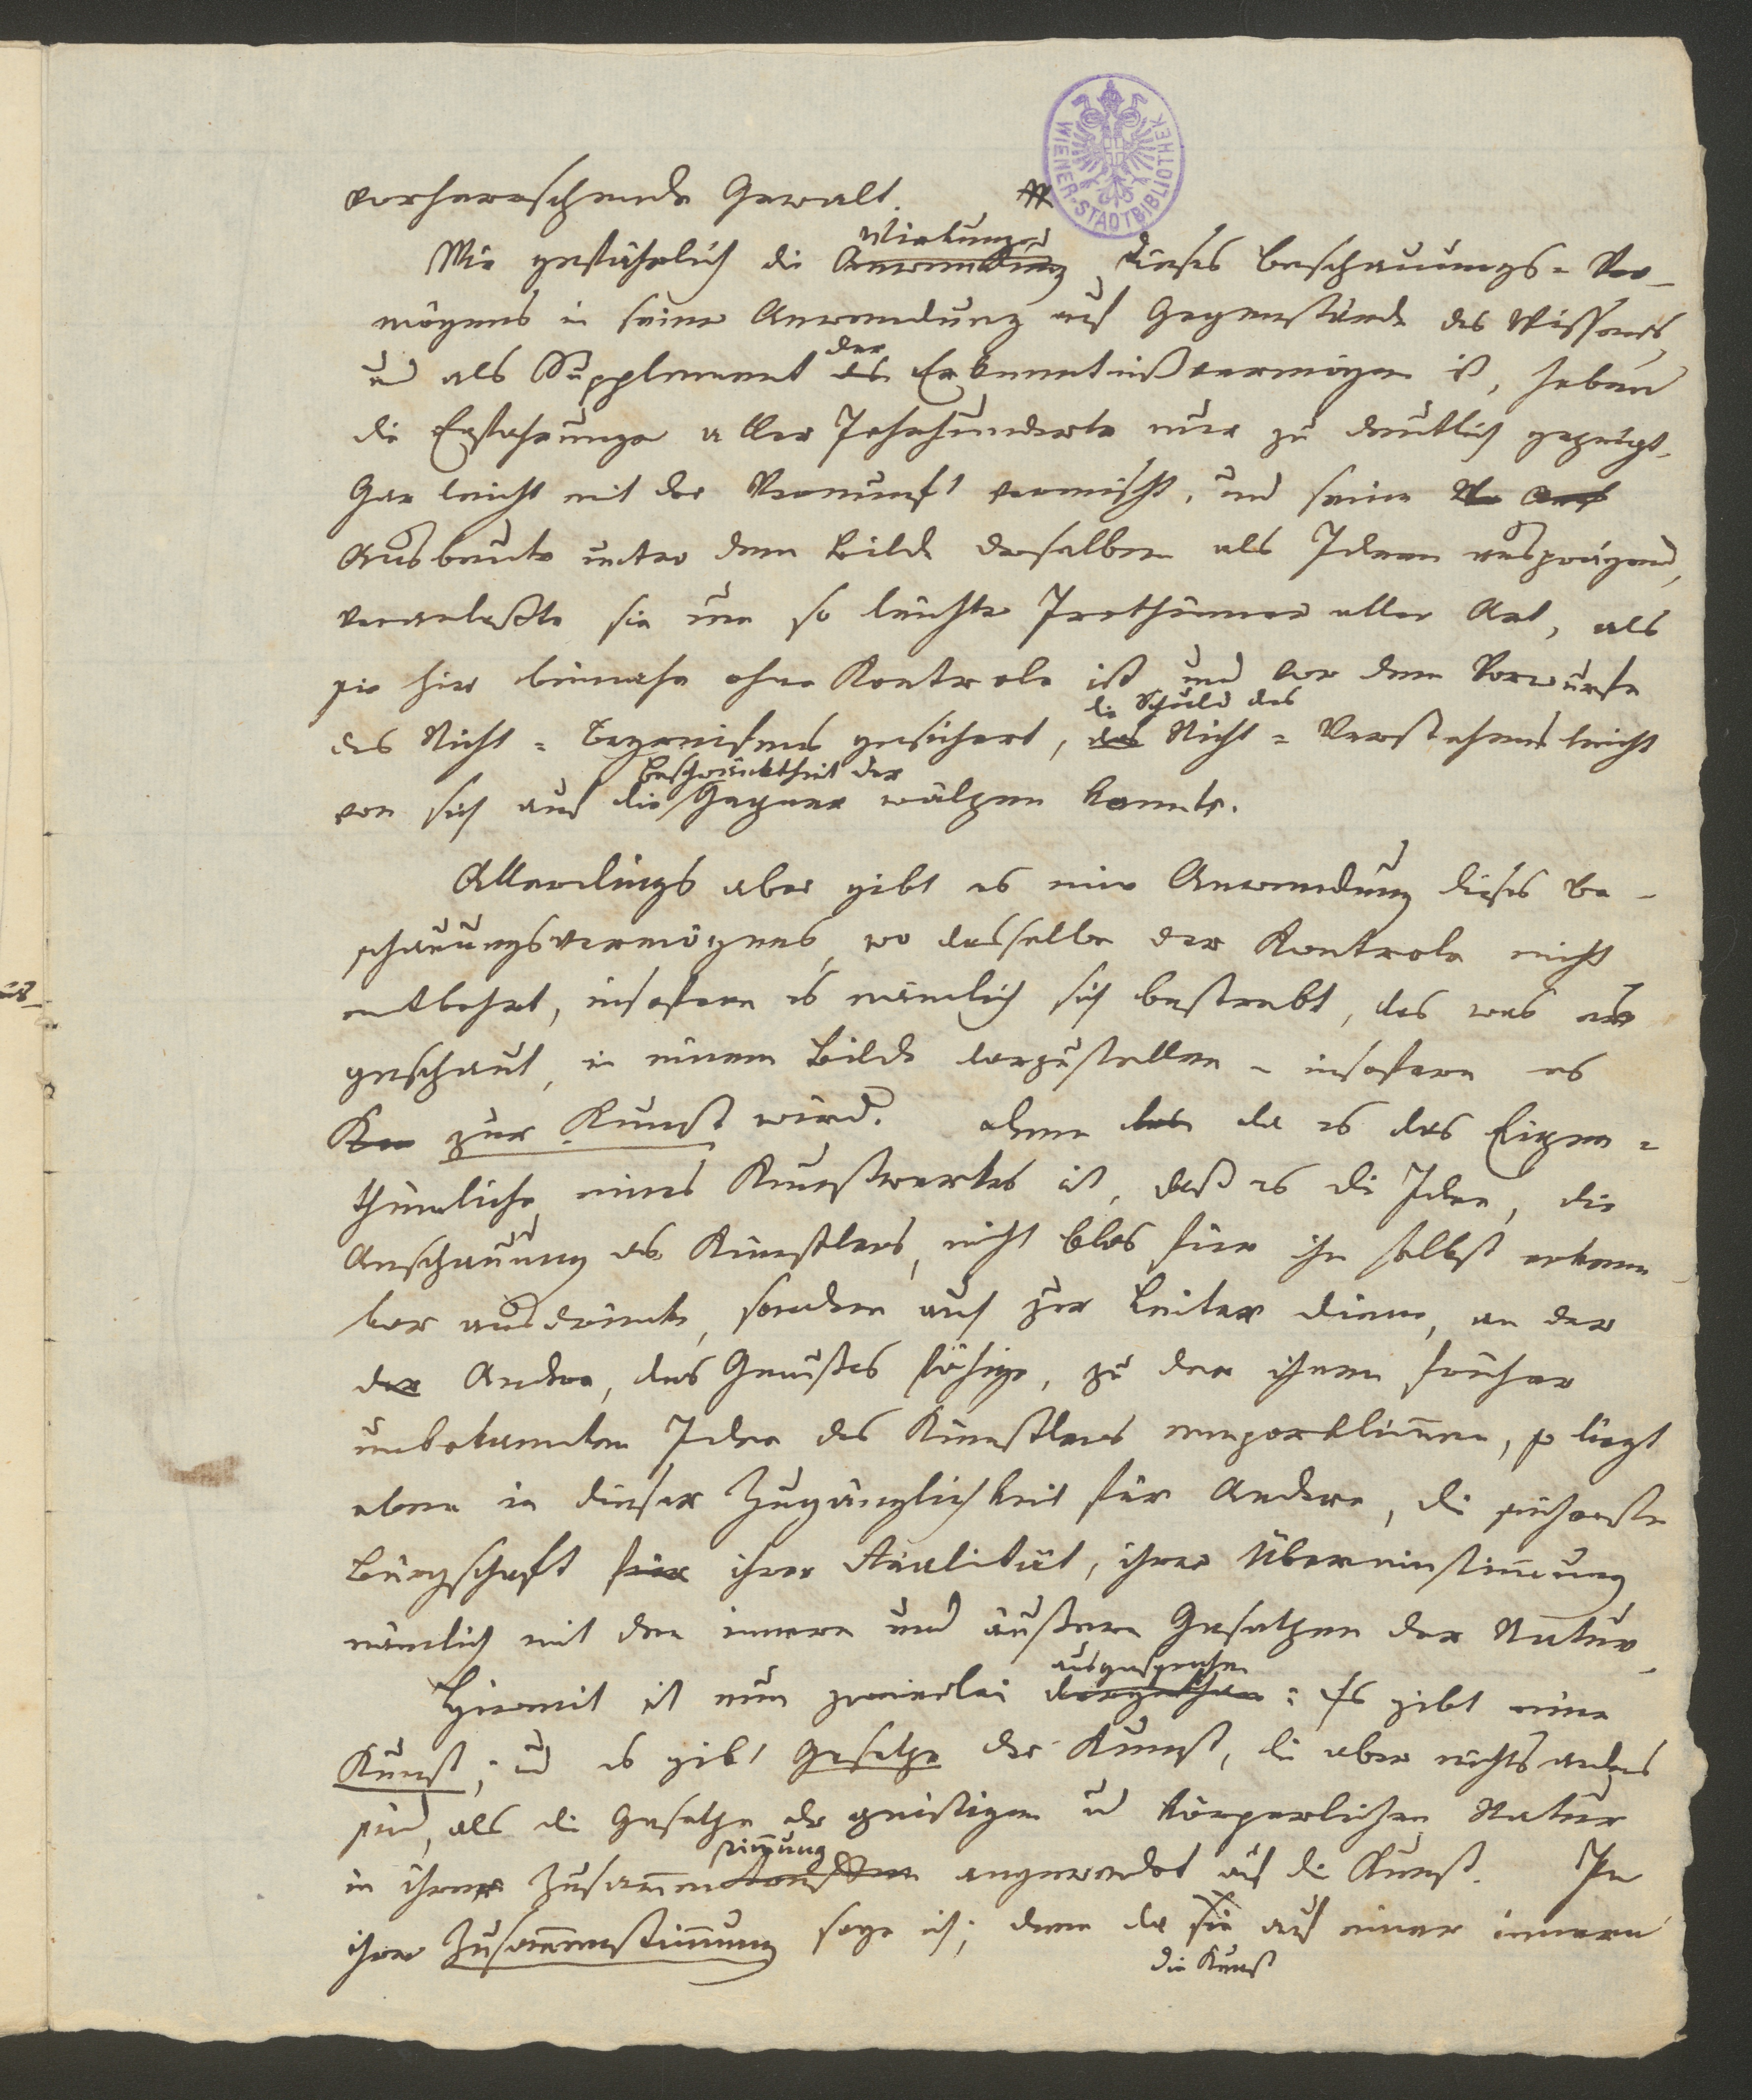 WIENER-STADTBIBLIOTHEK
vorherrschende Gewalt.
Wirkung
Wie gefährlich die Anwendung dieses Beschauungs-Ver-
mögens in seiner Anwendung auf Gegenstände des Wissens
der
und als Supplement des Erkenntnißvermögen ist, haben
die Erfahrungen aller Jahrhunderte nur zu deutlich gezeigt.
Gar leicht mit der Vernunft vermischt, und seine
Ausbeute unter dem Bilde derselben als Ideen ausprägend,
veranlaßte sie um so leichter Irrthümer aller Art, als
sie hier beinahe ohne Kontrole ist und vor dem Vorwurfe
die Schuld des
des Nicht-Begreifens gesichert, das Nicht-Verstehens leicht
Beschränktheit der
von sich auf die Gegner wälzen konnte.
Allerdings aber gibt es eine Anwendung dieses Be-
schauungsvermögens, wo dasselbe der Kontrole nicht
entbehrt, insofern es nämlich sich bestrebt, das was es
geschaut, in einem Bilde darzustellen - insofern es
zur Kunst wird. denn da es das Eigen-
thümliche eines Kunstwerkes ist, daß es die Idee, die
Anschauung des Künstlers, nicht blos für ihn selbst erkenn-
bar ausdrückt, sondern auch zur Leiter diene, an der
der Andere, des Genußes fähige, zu der ihnen früher
unbekannten Idee des Künstlers emporklimmen, so liegt
eben in dieser Zugänglichkeit für Andere, die sicherste
Bürgschaft für ihrer Realität, ihrer Übereinstimmung
nämlich mit den innern und äußern Gesetzen der Natur.
ausgesprochen
Hiermit ist nun zweierlei dargethan: Es gibt eine
Kunst; und es gibt Gesetze der Kunst, die aber nichts anders
sind, als die Gesetze der geistigen und körperlichen Natur
stimmung
in ihrer Zusammen angewendet auf die Kunst. In
ihrer Zusammenstimmung sage ich; denn da sie auf einer innern
die Kunst